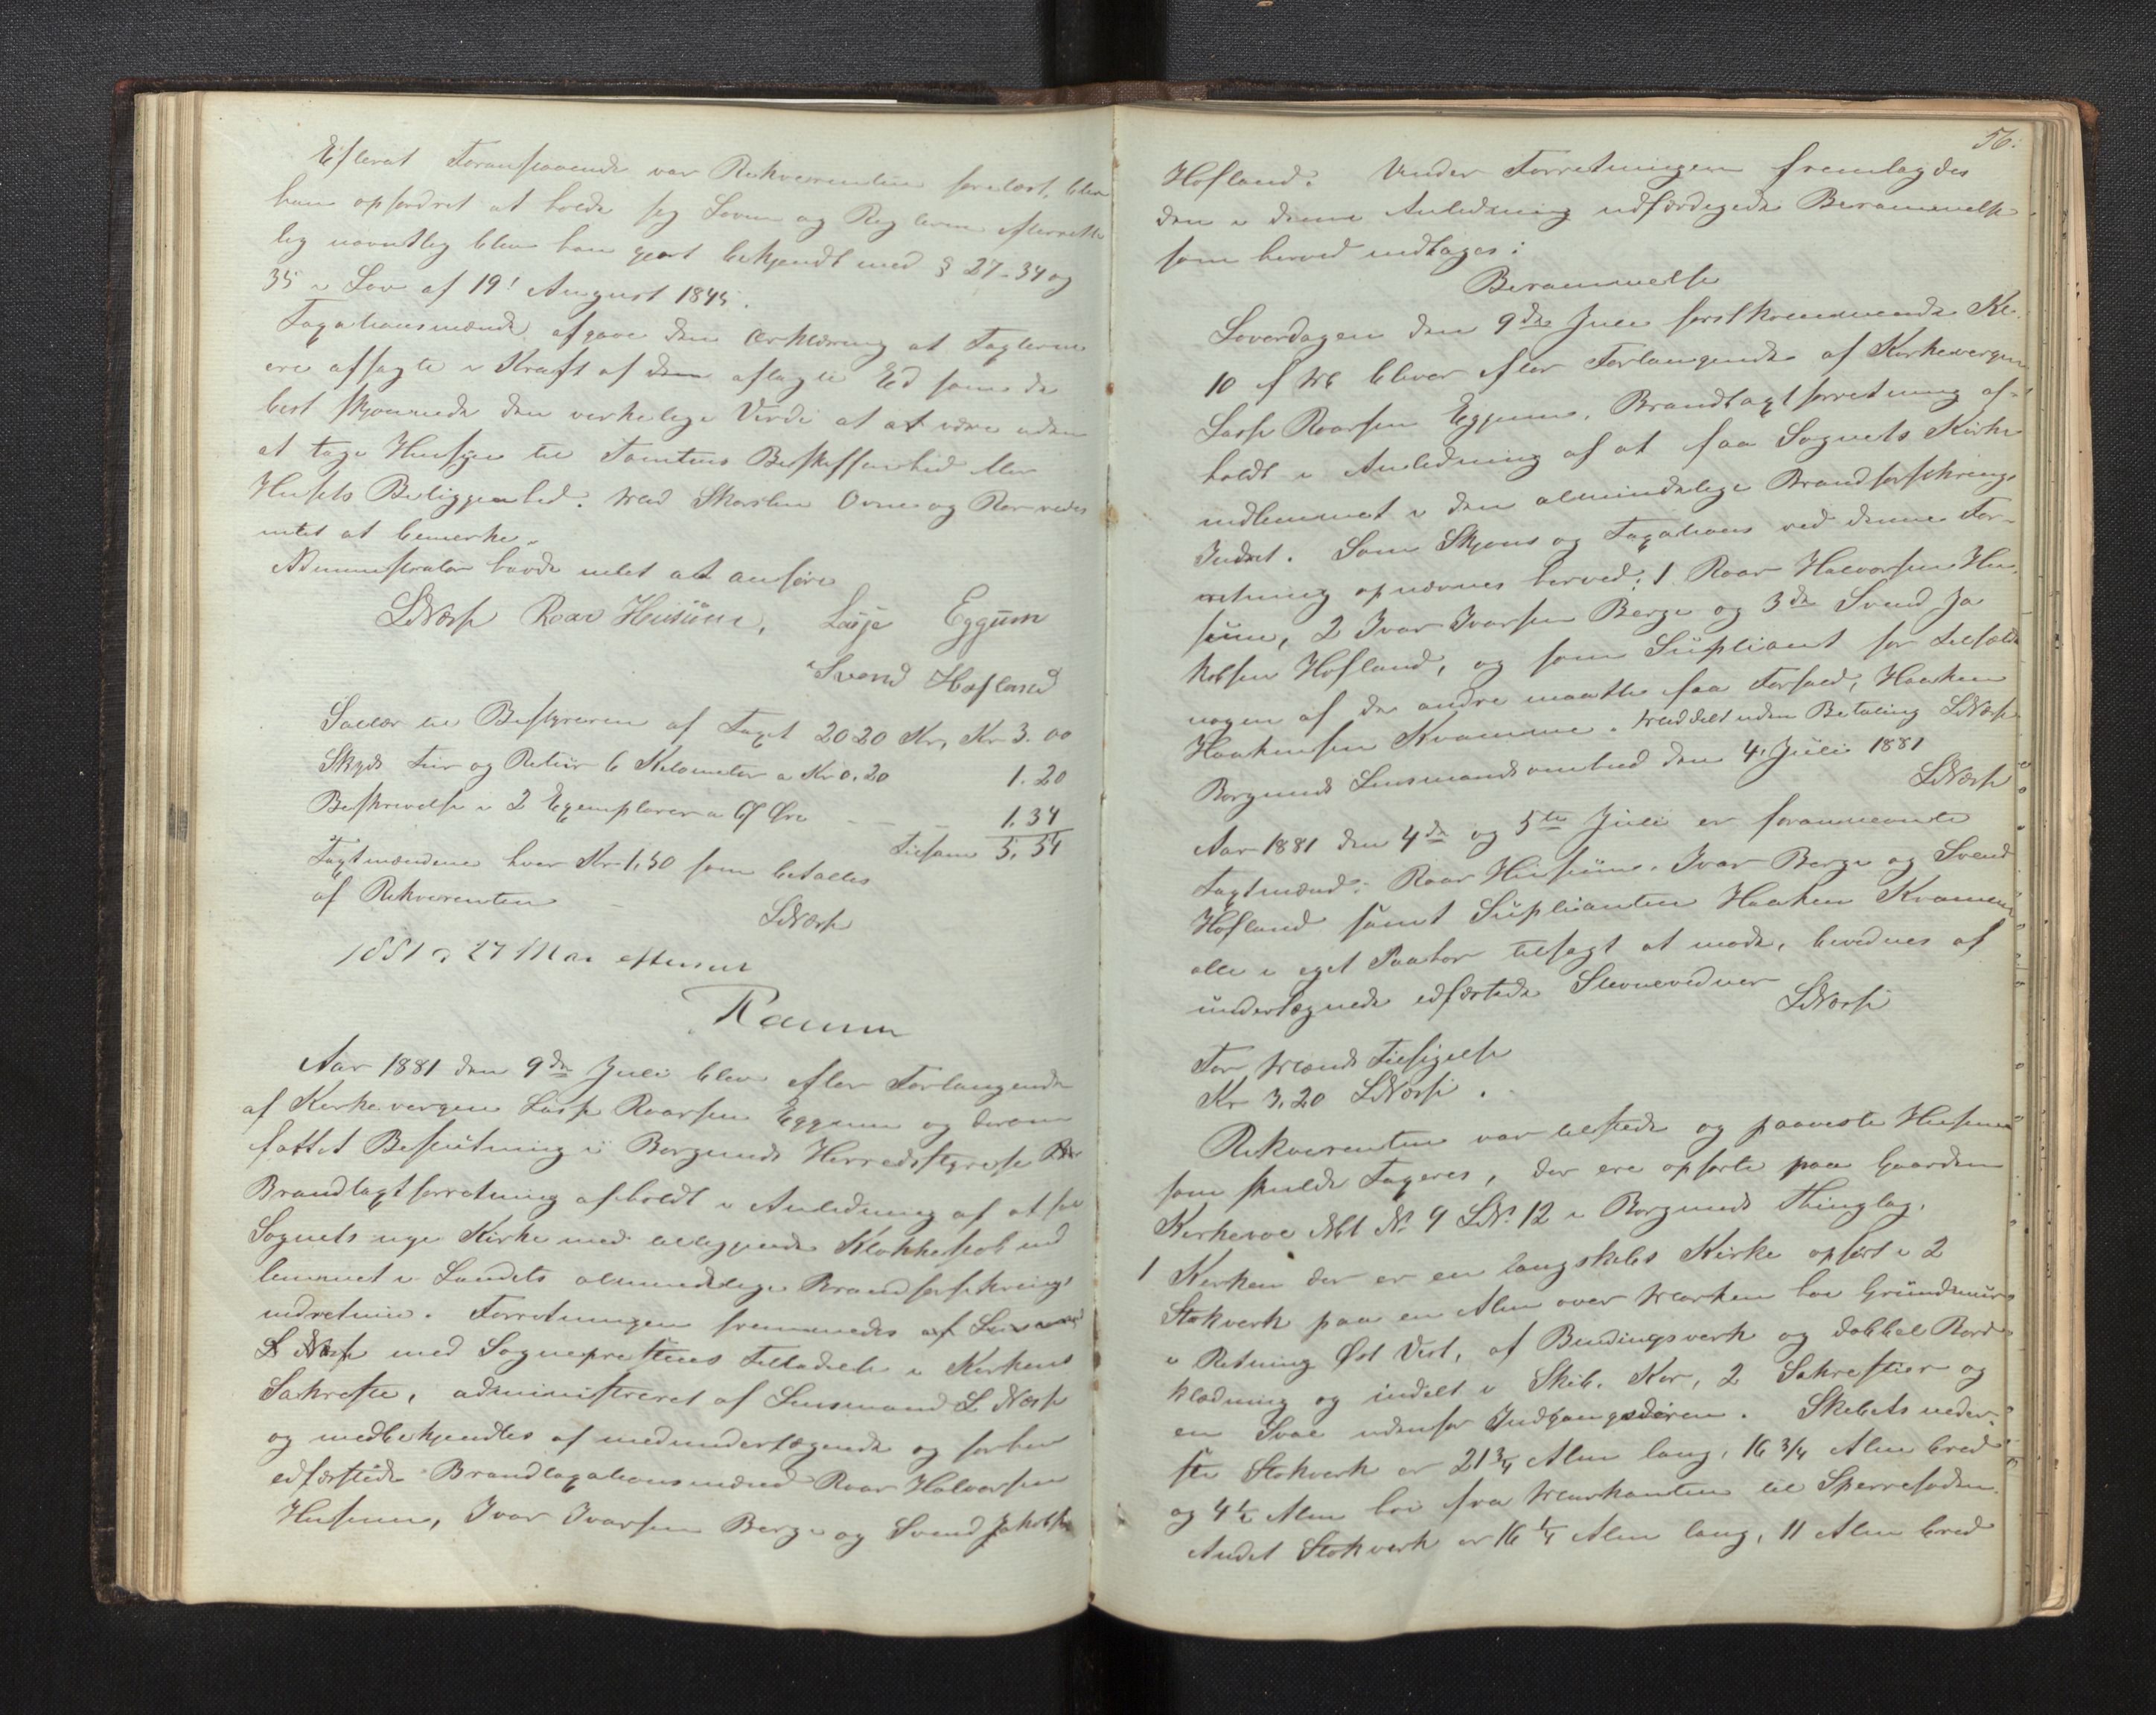 Efterat Foranstaaende var Rekvirenten forelæst, blev
han opfordret at holde sig Loven og Reglerne efterrette
lig navnlig blev han gjort bekjendt med § 27-34 og
35 i Lov af 19! August 1845.
Taxationsmænde afgave den Erklæring at Taxterne
ere afsagte i Kraft af dem aflagte Ed som de
best skjønnede den verkelige Verdi at at være uden
at tage Hensyn til Tomtens Beskaffenhed eller
Husets Beliggenhed. Med Skorsten Ovne og Rør vides
intet at bemerke.
Administrator havde intet at anføre
LNæsse Roar Husüm, Lasse Eggum
Svend Hofland
Sallær til Bestyreren af Taxt 2020 Kr, Kr 3.00
Skyds Tur og Retür 6 Kelometer a Kr 0.20 1.20
Beskrivelse i 2 Exemplarer a 67 Øre - - - 1.34
Tilsam 5.54
Taxtmændene hver Kr 1,50 som betalles
af Rekvirenten
LNæsse
1881 d 27 Mai efterseet
Ramm
Aar 1881 den 9de Juli blev efter Forlangende
af Kirkevergen Lasse Roarsen Eggum og derom
fattet Beslutning i Borgunds Herredsstyrelse
Brandtaxtforretning afholdt i Anledning af at faa
Sognets nye Kirke med tilliggende Klokkestob ind
lemmet i Landets almindelige Brandforsikrings
indretnin. Forretningen fremmedes af Lensmand
L Næsse med Sogneprestens Tilladelse i Kirkens
Sakreste, administreret af Lensmand L Næsse
og medbekjendtes af medundertegnede og forhen
edfæstede Brandtaxationsmænd Roar Halvorsen
Husum, Ivar Ivarsen Berge og Svend Jakobsen
56.
Hofland. Under Forretningen fremlagdes
den i denne Anledning udfærdigede Berammelse
som herved indtages:
Berammelse
Løverdagen den 9de Juli førstkommende Kl.
10 f M bliver efter Forlangende af Kirkevergen
Lasse Roarsen Eggum, Brandtaxtforretning af-
holdt i Anledning af at faa Sognets Kirke
indlemmet i den almindelige Brandforsikrings
Indret. Som Skjøns og Taxations ved denne For-
retning opnævnes herved: 1 Roar Halvorsen Hu-
süm, 2 Ivar Ivarsen Berge og 3de Svend Ja
kobsen Hofland, og som Süpliant for Tilfælde
nogen af de andre maatte faa Forfald, Haaken
Haakensen Kvamme. Meddelt uden Betaling LNæsse
Borgunds Lensmandsombud den 4. Juli 1881
LNæsse
Aar 1881 den 4de og 5te Juli er forannævnte
Taxtmænd: Roar Husüm, Ivar Berge og Svend
Hofland samt Süplianten Haaken Kvamme
alle i eget Paahør tilsagt at møde, bevidnes af
undertegnede edfæstede Stevnevidner
LNæsse
For Mænds Tilsigelse
Kr 3,20 LNæsse.
Rekvirenten var tilstede og paaviste Husene
som skulde Taxeres, der ere opførte paa Gaarden
Kirkevol Mt No 9 LNo 12 i Borgunds Thinglag.
1 Kirken der er en langskibs Kirke opført i 2
Stokverk paa en Alen over Marken høi Gründmür
i Retning Øst Vest, af Bindingsverk og dobbel Bord-
klædning og indelt i Skib, Kor, 2 Sakrestier og
en Sval udenfor Indgangsdøren. Skibets neder-
ste Stokverk er 21 3/4 Alen lang, 16 3/4 Alen bred
og 4 1/2 Alen høi fra Murkanten til Sperrefoden.
Andet Stokverk er 16 1/4 Alen lang, 11 Alen bred